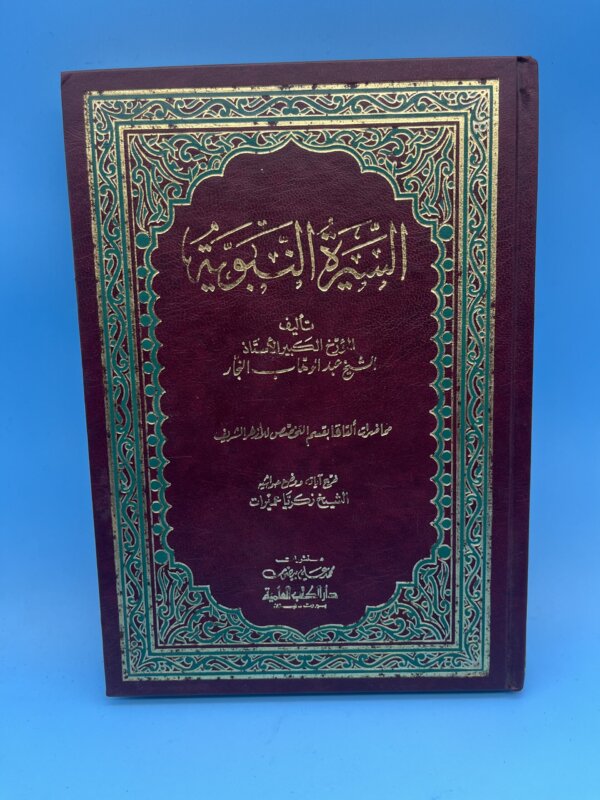 السِّيرَةُ النَّبَوِيَّةُ
تأليف
المؤرخ الكبير الأستاذ
الشيخ عبد الوهاب النجار
محاضرات ألقاها بقسم التخصّص للأزهر الشريف
خرج آياته ووضع حواشيه
الشيخ زكريا عميرات
منشورات
محمد علي بيضون
دار الكتب العلمية
بيروت - لبنان